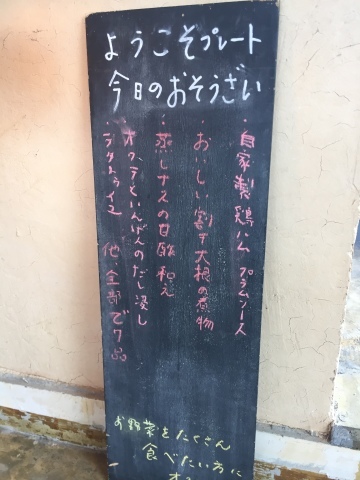 ようこそプレート
今日のおそうざい
・自家製鶏ハム プラムソース
・おいしい割干大根の煮物
・蒸しナスの甘酢和え
・オクラといんげんのだし浸し
他全部で7品
お野菜をたくさん
食べたい方に